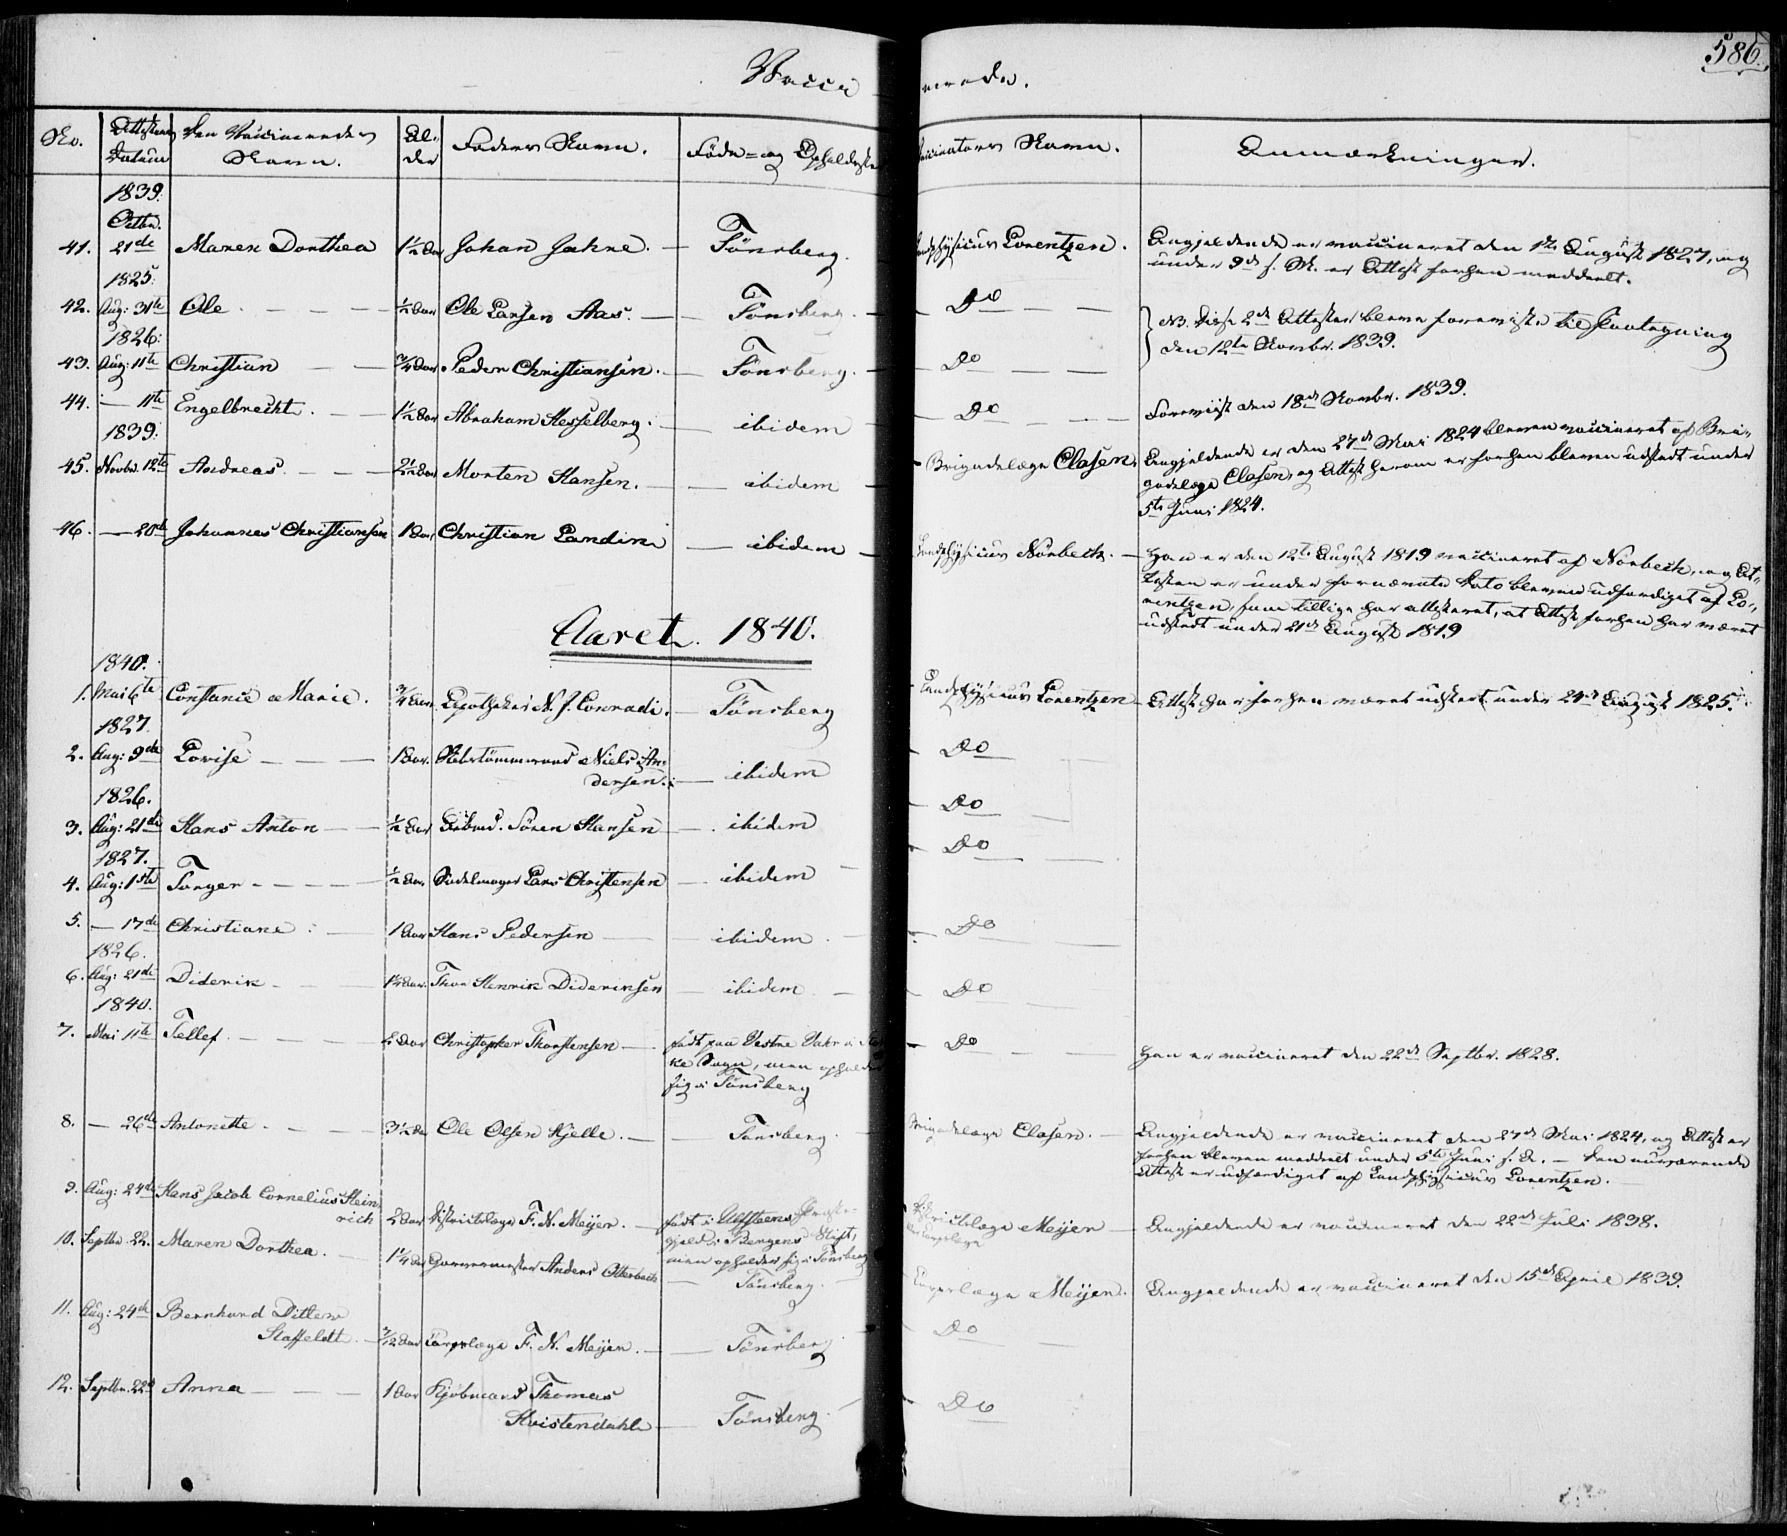 586.
Vacci - nerede.
No. Attestens Datum Den Vaccineredes Navn. Al-der Faders Navn. Føde- og Opholdsste Vaccinators Navn. Anmærkninger.
1839.
Octbr.
41. 21de Maren Dorthea 1½ Aar Johan Jahne. — Tönsberg. Landphysicus Lorentzen. Angjeldende er vaccineret den 1ste August 1827, og
under 9de s. M. er Attest forhen meddeelt.
1825.
42. Aug: 31te Ole — — — ½ Aar Ole Larsen Aas. — Tönsberg. — Do — — NB. Disse 2de Attester bleve foreviste til Paategning
1826.
43. Aug: 11te Christian — — ¾ Aar Peder Christiansen. — Tönsberg. — Do — — den 12te Novbr. 1839.
44. — 11te Engelbrecht. — — 1½ Aar Abraham Hesselberg. — ibidem — Do — — Foreviist den 18de Novbr. 1839.
1839.
45. Novbr. 12te Andreas. — — 2½ Aar Morten Hansen. — — ibidem — Brigadelæge Clasen. Angjeldende er den 27de Mai 1824 bleven vaccineret af Bri-
gadelæge Clasen, og Attest herom er forhen bleven udstedt under
5te Juni 1824.
46. — 20de Johannes Christiansen 1 Aar Christian Landin — ibidem — Landphysicus Norbech. — Han er den 12te August 1819 vaccineret af Norbech, og At-
testen er under fornævnte Dato bleven udfærdiget af Lo-
rentzen, som tillige har attesteret, at Attest forhen har været
udstedt under 21de August 1819
Aaret. 1840.
1840.
1. Mai 6te Constance Marie. ¾ Aar Apotheker N. J. Conradi. — Tönsberg Landphysicus Lorentzen — Attest har forhen været udstedt under 24de August 1825.
1827.
2. Aug: 9de Lovise — — — 1 Aar. Skibstømmermand Niels An-
dersen. — ibidem — Do
1826.
3. Aug: 21de Hans Anton — — ½ Aar Arbmd. Sören Hansen — ibidem — Do —
1827.
4. Aug: 1ste Torger — — — — ½ Aar Sadelmager Lars Christensen — ibidem — Do — —
5. — 17de Christiane — — 1 Aar Hans Pedersen — — ibidem. — Do — —
1826.
6. Aug: 21de Diderik — — 1½ Aar. Thor Henrik Dideriksen — ibidem — Do — —
1840.
7. Mai 11te Tellef — — — Aar Christopher Thorstensen — født paa Vestre
ke Sogn, men opholder
sig i Tönsberg — Do — — Han er vaccineret den 22de Septbr. 1828.
8. — 26de Antonette — — — 3½ Aar Ole Olsen Kjelle. — — Tönsberg. — Brigadelæge Clasen. — Angjeldende er vaccineret den 27de Mai 1824, og Attest er
forhen bleven meddeelt under 5te Juni s. A. — Den nuværende
Attest er udfærdiget af Landphysicus Lorentzen. —
9. Aug: 24de Hans Jacob Cornelius Hein-
rich 2 Aar Districtslæge F. N. Meyer. — født i Præste-
gjeld i Bergens Stift,
men opholder sig i Tönsberg Districtslæge Meyer — Angjeldende er vaccineret den 22de Juli 1838.
10. Septbr. 22. Maren Dorthea. — 1¼ Aar Garvermester Anders Otterbech — Tönsberg. Corpslæge Meyer. — Angjeldende er vaccineret den 15de April 1839.
11. Aug: 24de Bernhard Ditlew
Staffeldt. — Aar Corpslæge F. N. Meyer. — — Tönsberg — Do —
12. Septbr. 22de Anna — — — 1 Aar Kjöbmand Thomas
Kvistendahl — Tönsberg. — Do